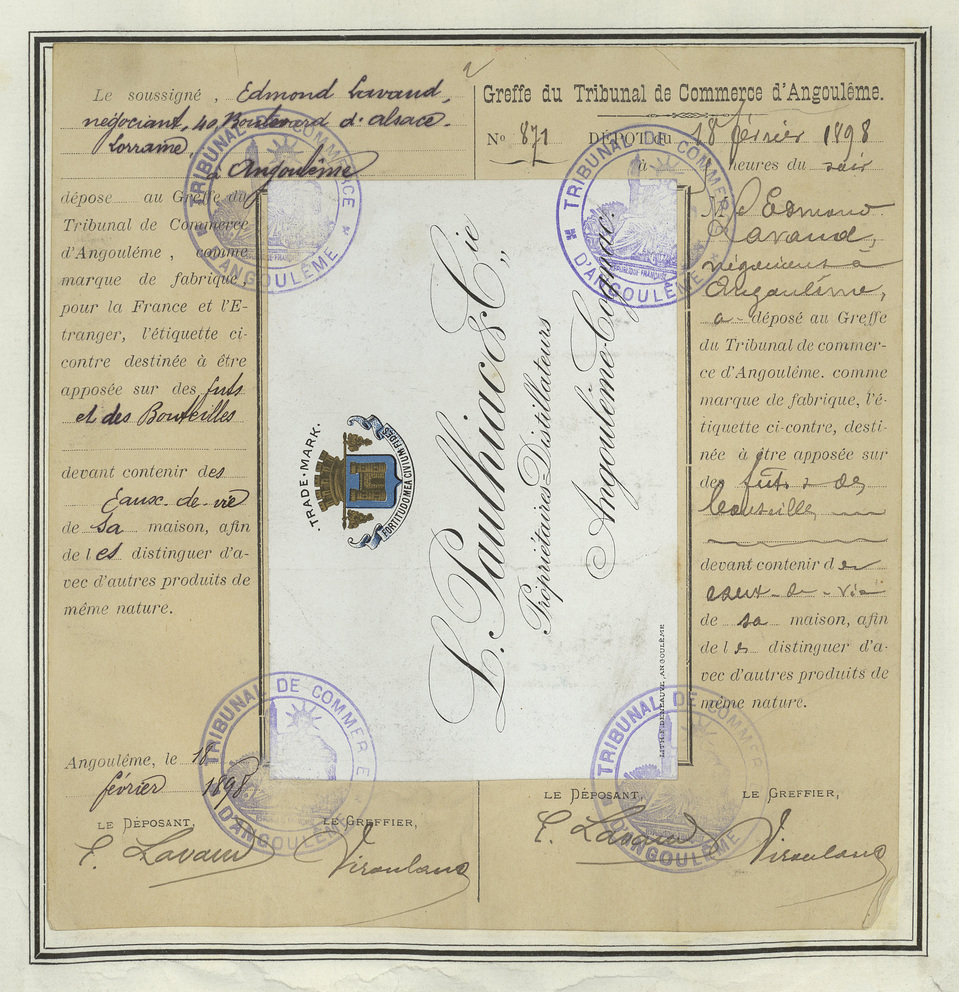 Le soussigné, Edmond Lavaud,
négociant, 40 Boulevard d'alsace-
Lorraine,
à Angoulême
dépose au Greffe du
Tribunal de Commerce
d'Angoulême, comme
marque de fabrique,
pour la France et l'E-
tranger, l'étiquette ci-
contre destinée à être
apposée sur des futs
et des Bouteilles
devant contenir des
Eaux-de-vie
de sa maison, afin
de les distinguer d'a-
vec d'autres produits de
même nature.
Angoulême, le 18
février 1898
LE DÉPOSANT, LE GREFFIER,
E. Lavaud
TRADE-MARK.
FORTITUDO MEA CIVIUM FIDES
L. Paulhiac & Cie
Propriétaires-Distillateurs
Angoulême-Cognac.
ANGOULÊME
Greffe du Tribunal de Commerce d'Angoulême.
No 871 DÉPOT du 18 février 1898
à heures du soir
M. Edmond
Lavaud,
négociant à
Angoulême,
a déposé au Greffe
du Tribunal de commer-
ce d'Angoulême. comme
marque de fabrique, l'é-
tiquette ci-contre, desti-
née à être apposée sur
des futs & des
bouteilles
devant contenir des
eaux-de-vie
de sa maison, afin
de les distinguer d'a-
vec d'autres produits de
même nature.
LE DÉPOSANT, LE GREFFIER,
E. Lavaud
TRIBUNAL DE COMMERCE
D'ANGOULÊME
TRIBUNAL DE COMMERCE
D'ANGOULÊME
RÉPUBLIQUE FRANÇAISE
TRIBUNAL DE COMMERCE
D'ANGOULÊME
TRIBUNAL DE COMMERCE
D'ANGOULÊME